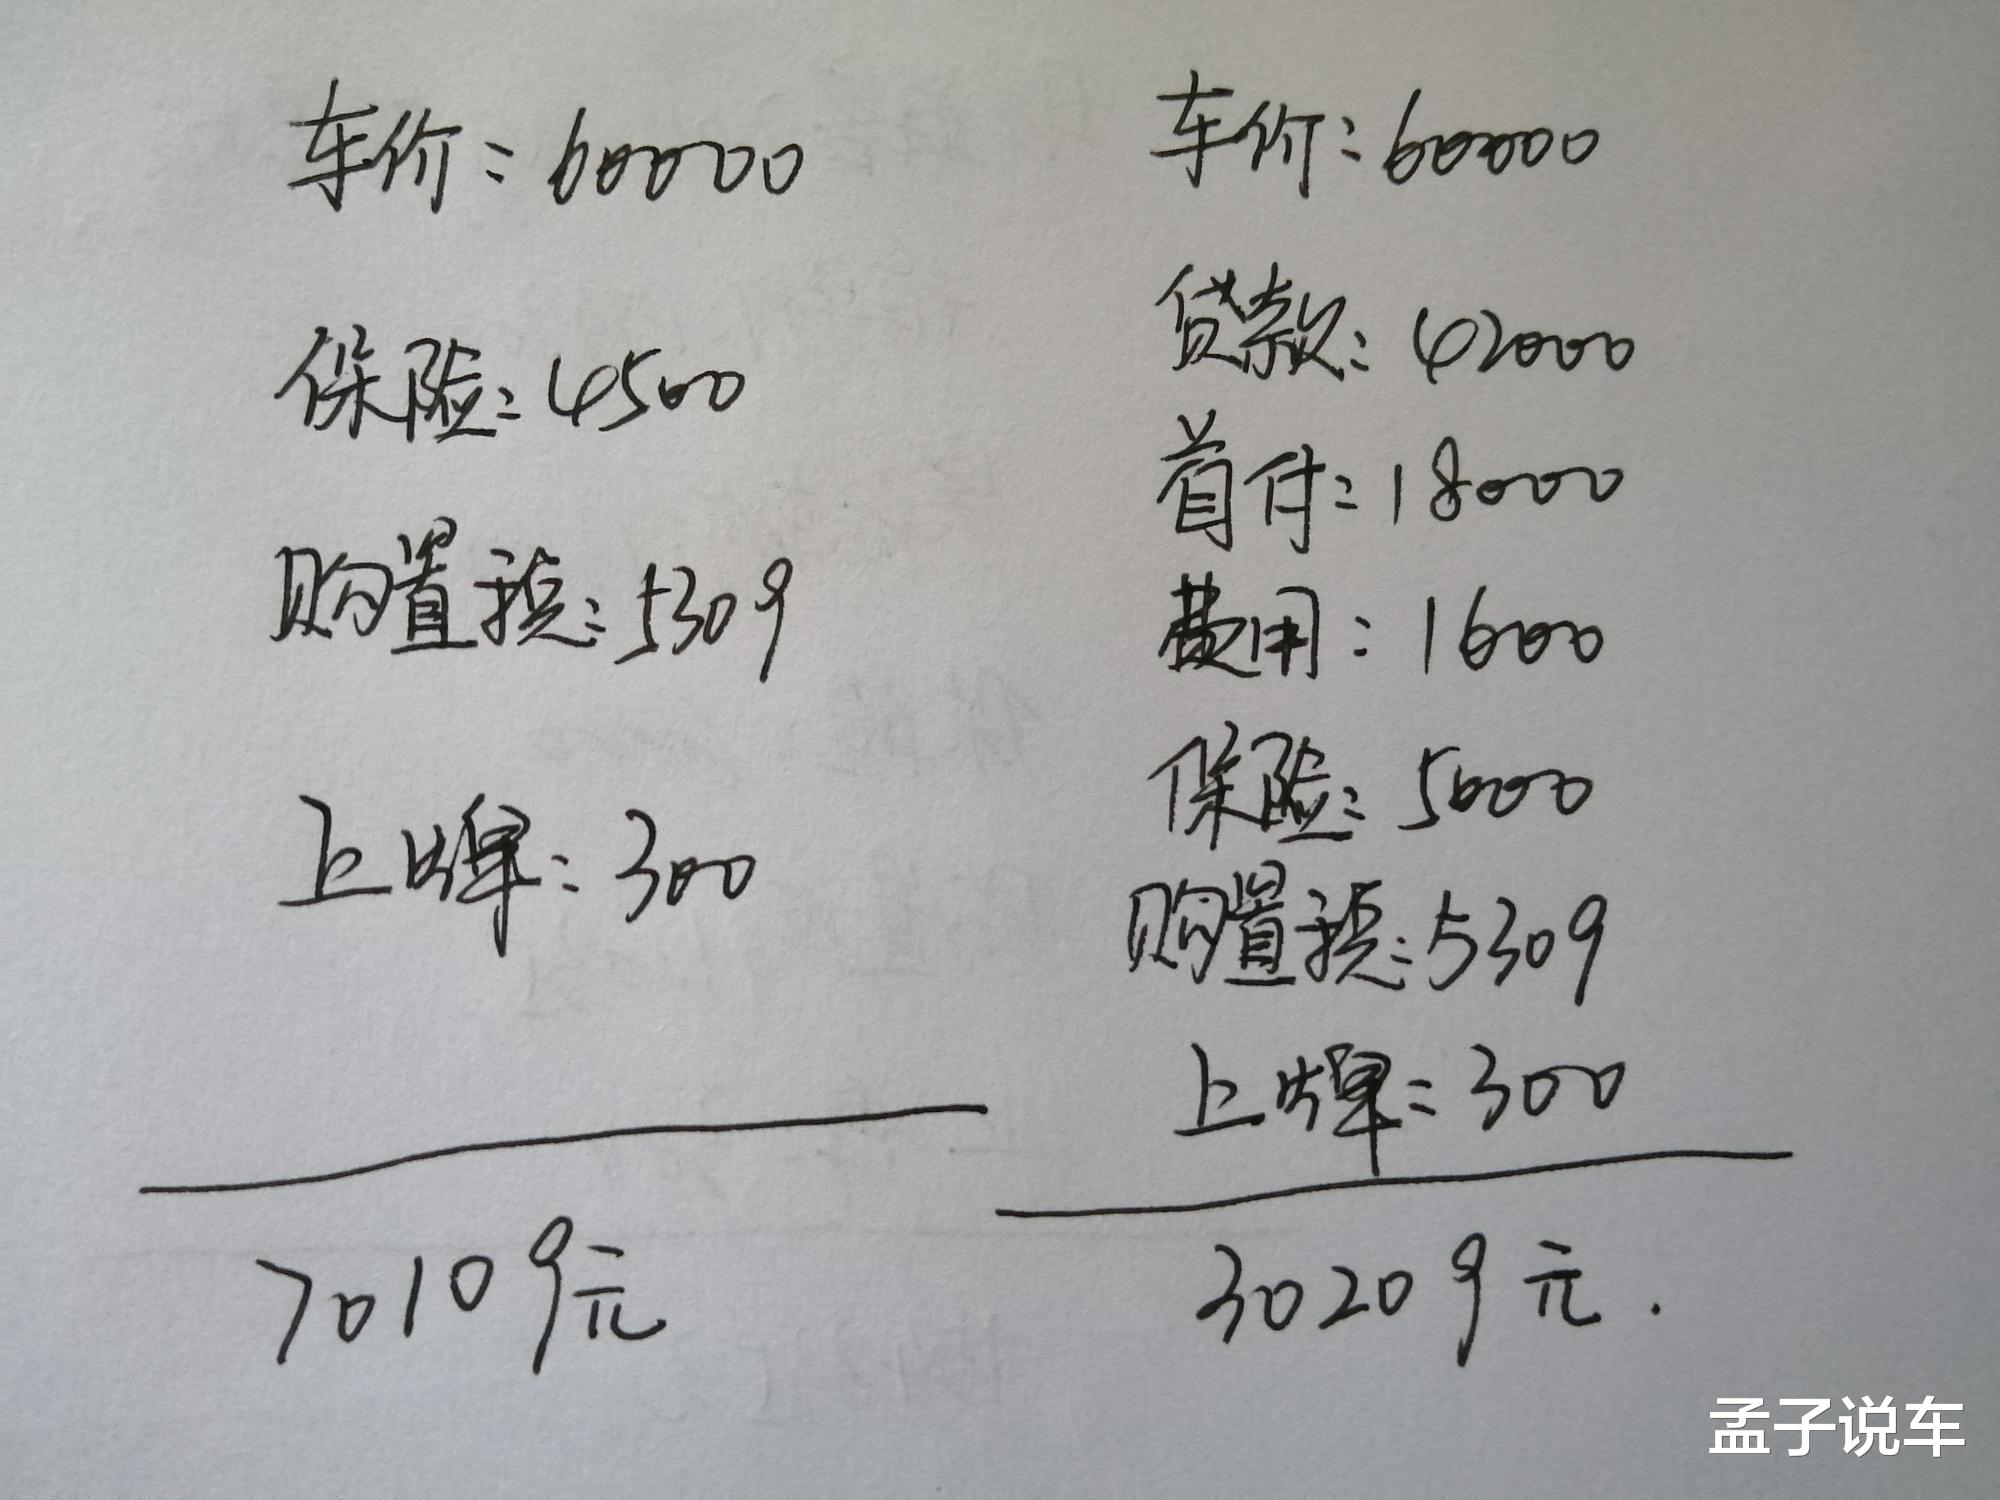 车价：60000
保险：4500
购置税：5309
上牌：300
70109元
车价：60000
贷款：42000
首付：18000
费用：1600
保险：5000
购置税：5309
上牌：300
30209元.
孟子说车